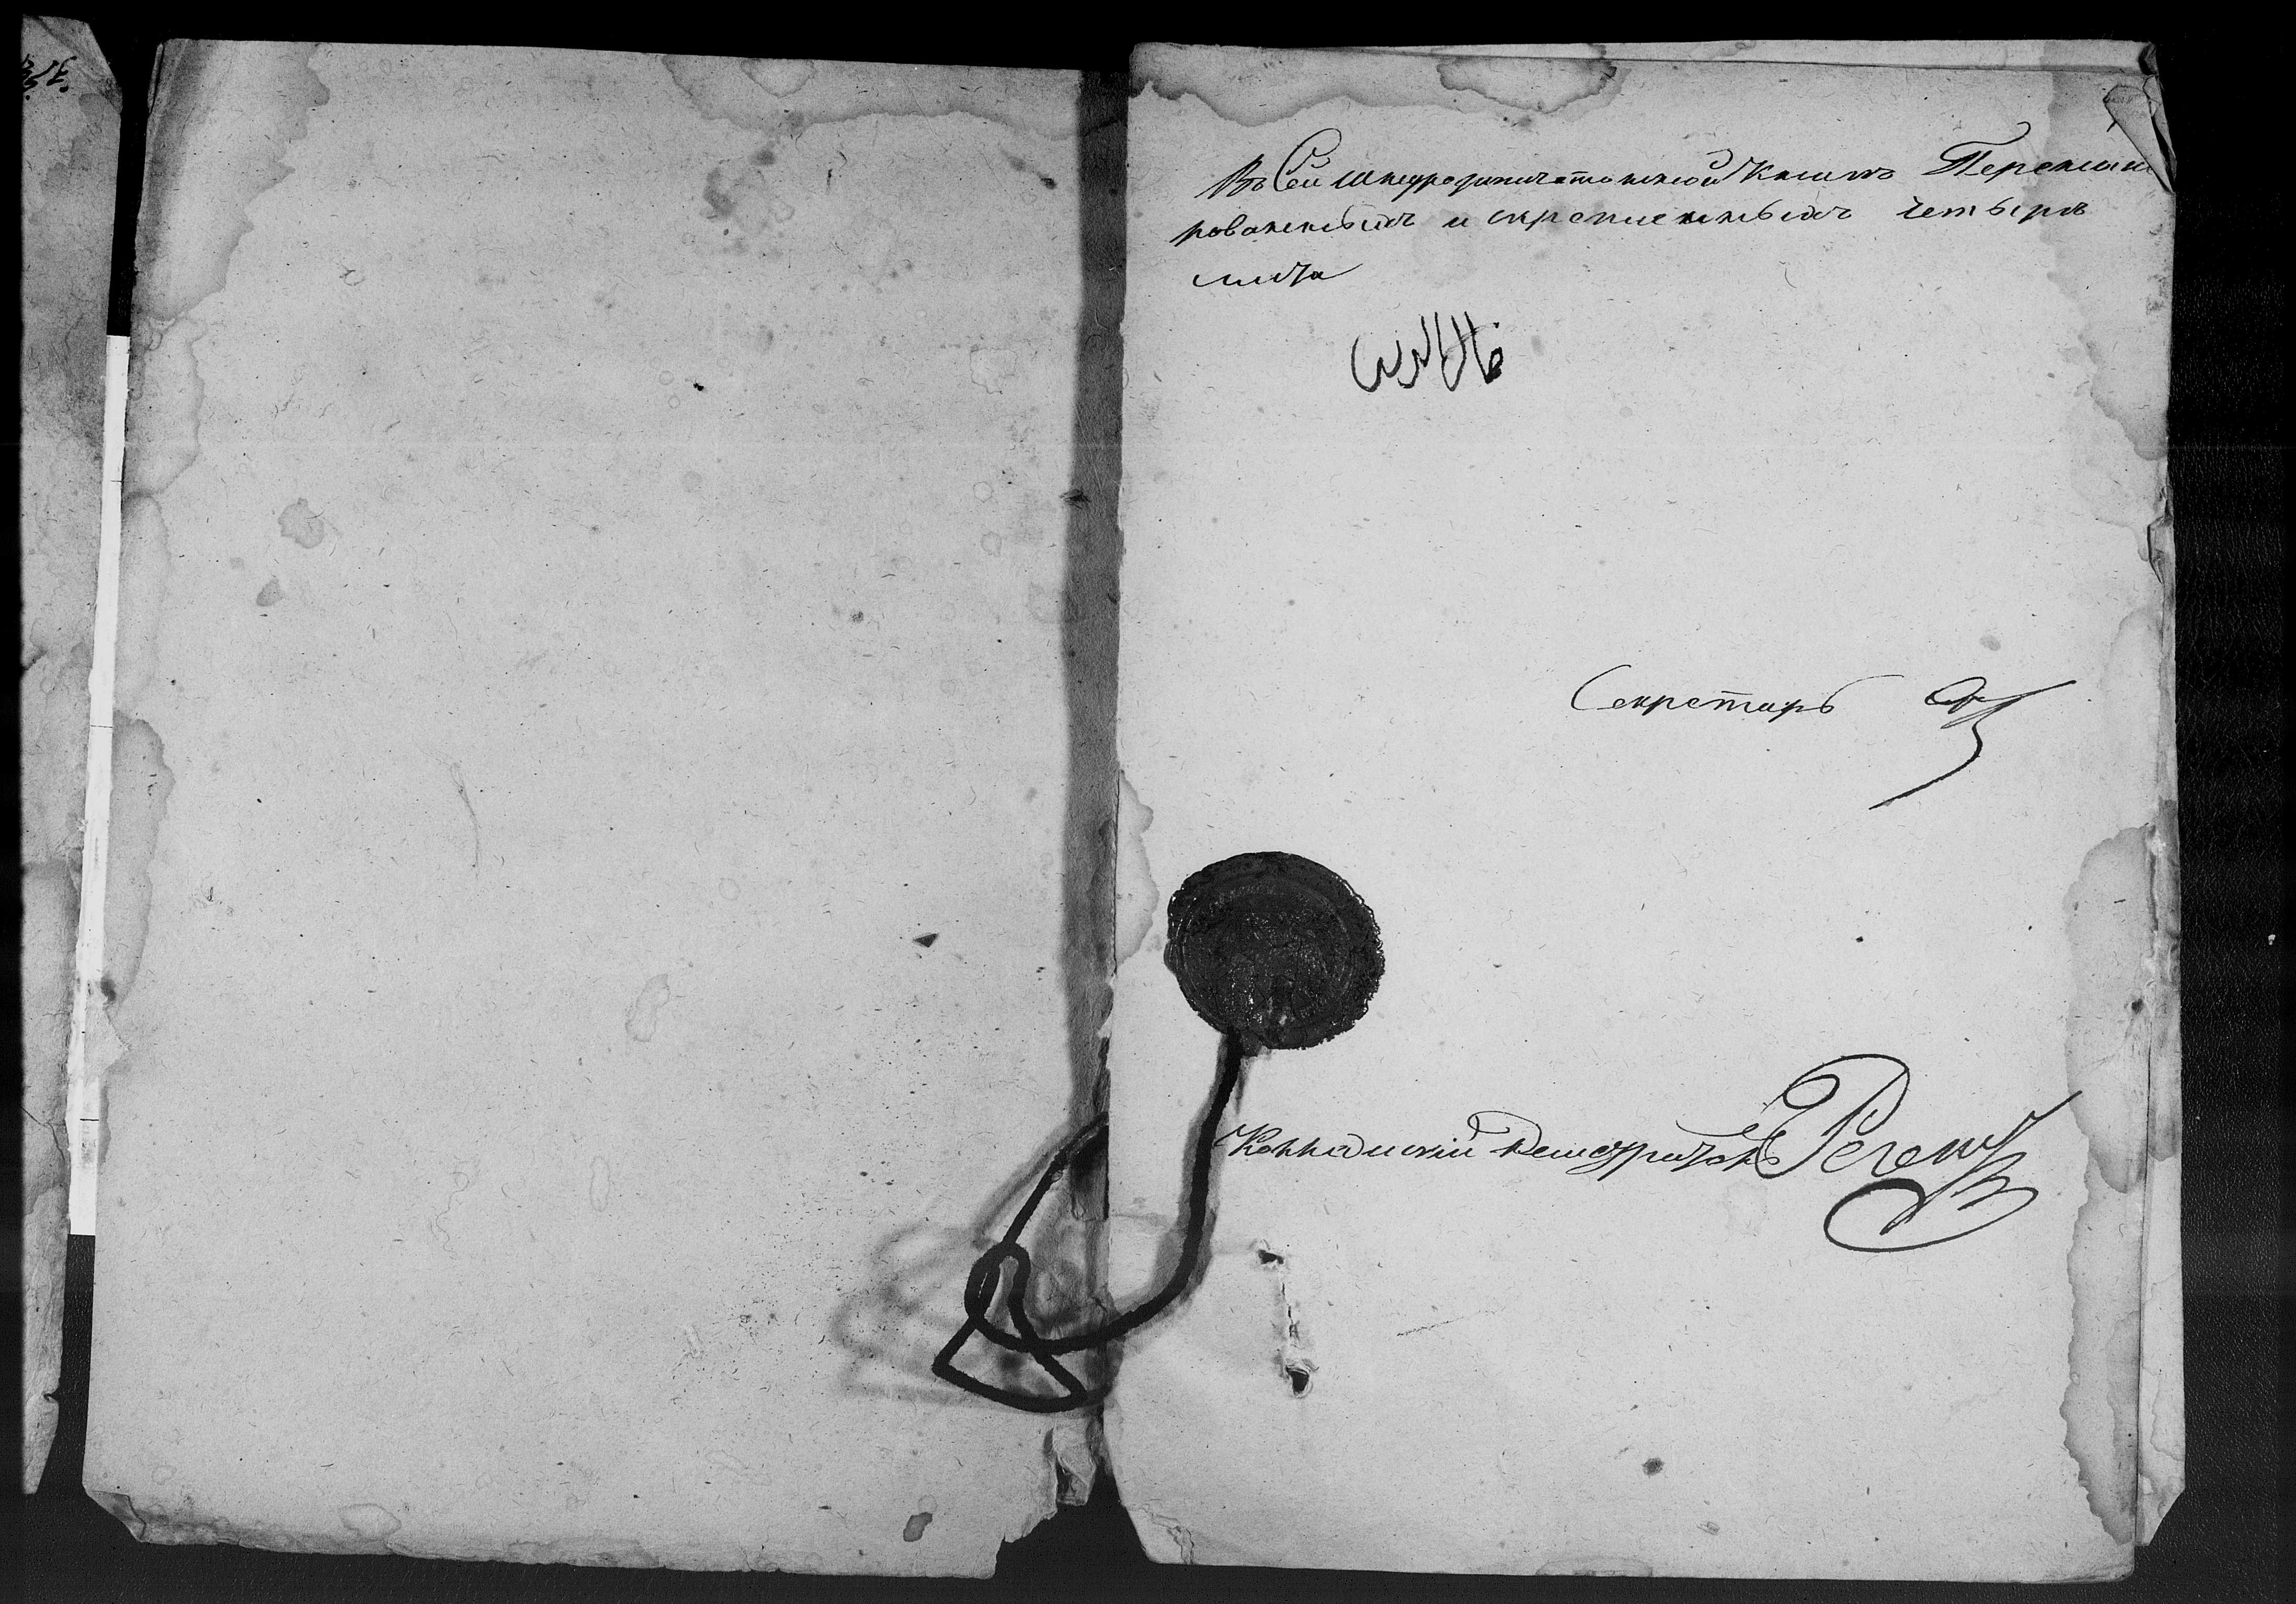 Въ Сей шнурозапичатанной Книгѣ Перенуме
рованныхъ и скрепленныхъ четыре
листа
Секретарь
Коллежскій Регистраторъ